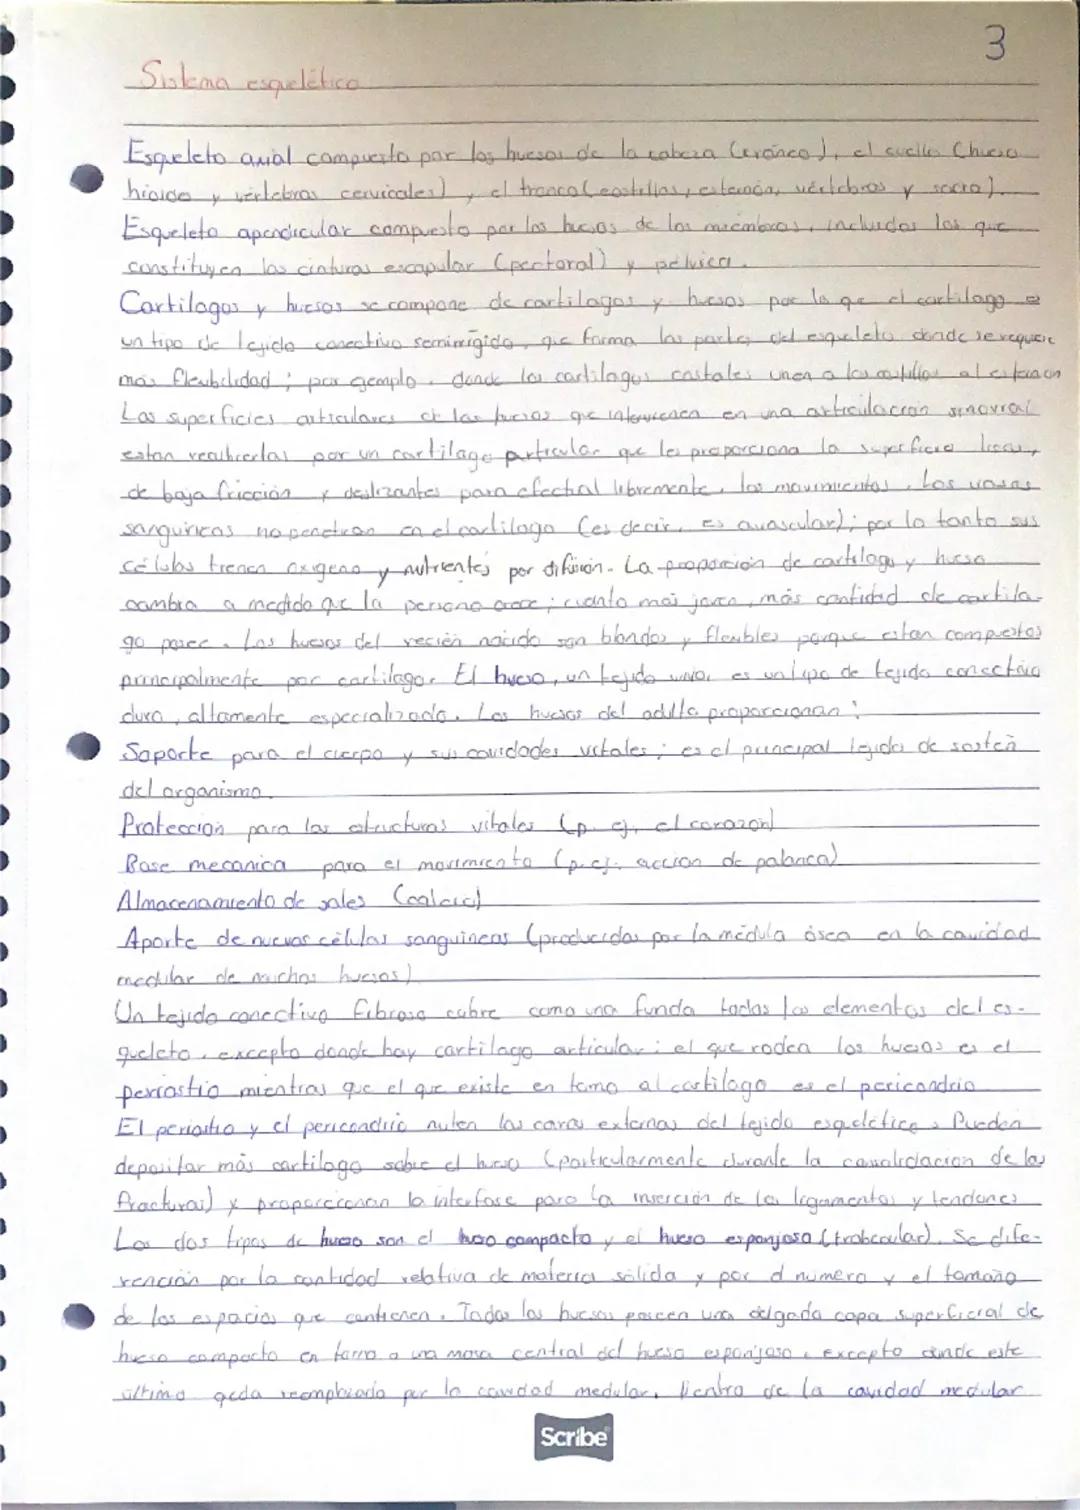 3
Sistema esquelético
Esqueleto axial compuesto por los huesos de la cabeza (cráneo), el cuello (hueso
hioide y vértebras cervicales), el tronco (costillas, esternón, vértebras y sacro).
Esqueleto apendicular compuesto por los huesos de los miembros, incluidos los que
constituyen las cinturas escapular (pectoral) y pélvica.
Cartílagos y huesos se compone de cartílagos y huesos por lo qe el cartílago es
un tipo de tejido conectivo semirrígido, que forma las partes del esqueleto donde se requiere
más flexibilidad; por ejemplo, donde los cartílagos costales unen a las costillas al esternón
Las superficies articulares de los huesos que intervienen en una articulación sinovial
estan recubiertas por un cartílago particular que les proporciona la superficie lisas,
de baja fricción y deslizantes para efectual libremente, los movimientos. Los vasos
sanguíneos no penetran en el cartílago (es decir, es avascular); por lo tanto sus
células tienen oxígeno y nutrientes por difusión. La proporción de cartílago y hueso
cambia a medida que la persona crece; cuanto más joven, más cantidad de cartíla-
go posee. Los huesos del recién nacido son blandos y flexibles porque estan compuestos
principalmente por cartílago. El hueso, un tejido vivo, es un tipo de tejido conectivo
duro, altamente especializado. Los huesos del adulto proporcionan:
Soporte para el cuerpo y sus cavidades vitales; es el principal tejido de sostén
del organismo.
Protección para las estructuras vitales (p. ej. el corazón)
Base mecánica para el movimiento (p.ej. acción de palanca)
Almacenamiento de sales (calcio)
Aporte de nuevas células sanguíneas (producidas por la médula ósea en la cavidad
medular de muchos huesos)
Un tejido conectivo fibroso cubre como una funda todos los elementos del es-
queleto, excepto donde hay cartílago articular; el que rodea los huesos es el
periostio mientras que el que existe en torno al cartílago es el pericondrio
El periostio y el pericondrio nuten las caras externas del tejido esquelético. Pueden
depositar más cartílago sobre el hueso (particularmente durante la consolidación de las
fracturas) y proporcionan la interfase para la inserción de los ligamentos y tendones
Los dos tipos de hueso son el hueso compacto y el hueso esponjoso (trabecular). Se dife-
rencian por la cantidad relativa de materia sólida y por el número y el tamaño
de los espacios que contienen. Todos los huesos poseen una delgada capa superficial de
hueso compacto en torno a una masa central del hueso esponjoso, excepto donde este
último qeda reemplazado por la cavidad medular. Dentro de la cavidad medular
Scribe